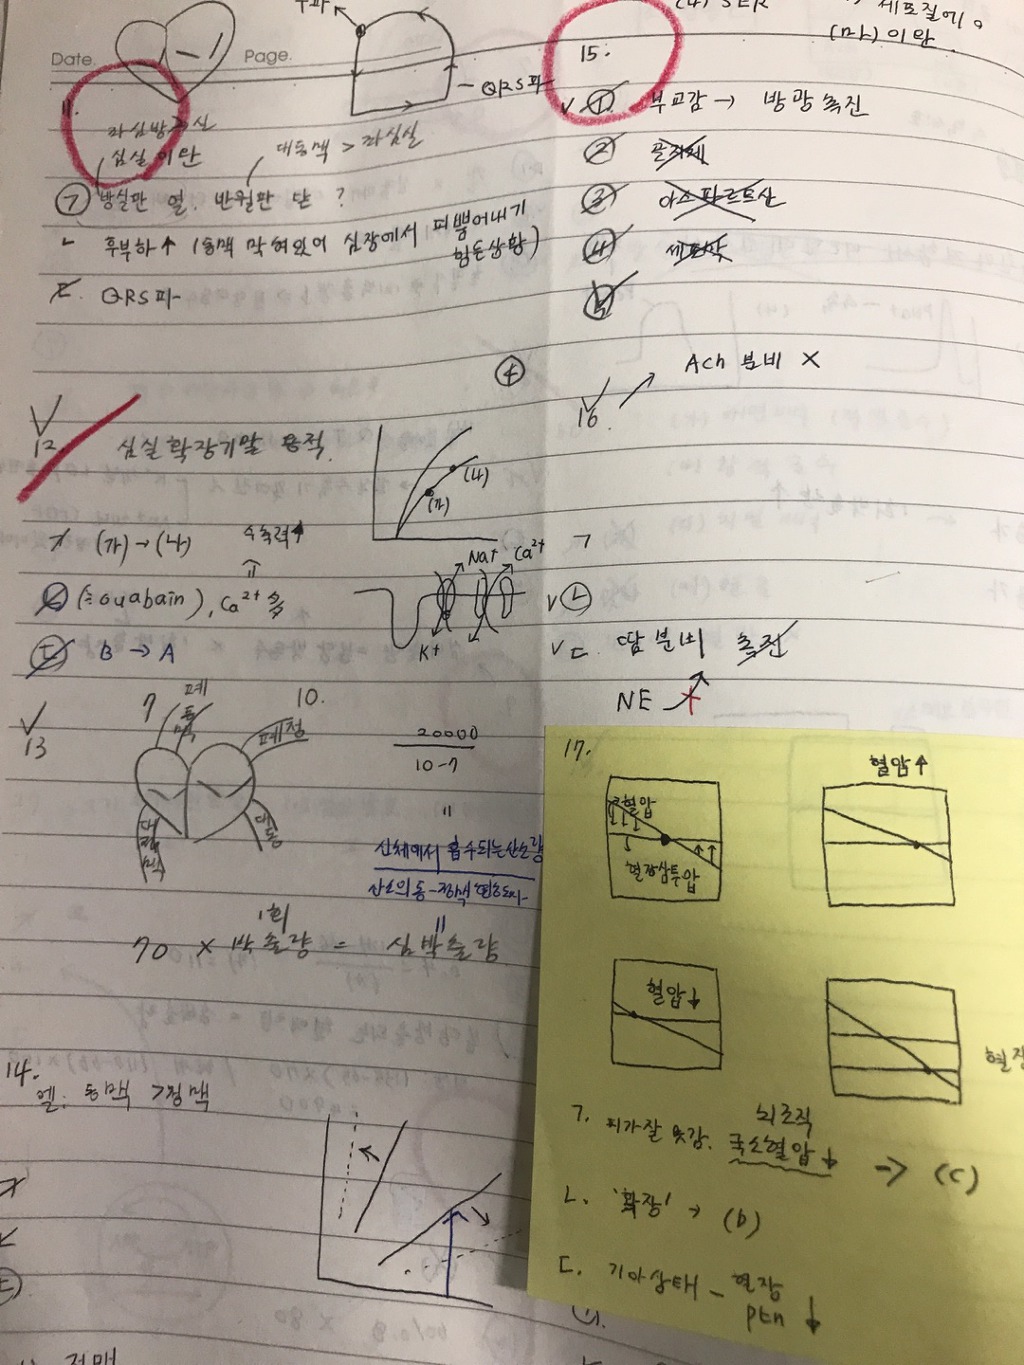 Date.
Page.
QRS파
11.
좌심방 > 심
심실 이완
대동맥 > 좌심실
ㄱ 방실판 열. 반월판 닫 ?
ㄴ 후부하↑ (동맥 막혀있어 심장에서 피뿜어내기
힘든상황)
ㄷ. QRS파
12. 심실 확장기말 용적.
(나)
(가)
ㄱ (가)→(나) 수축력↑
=
ㄴ (= ouabain), Ca2+
Na+ Ca2+
K+
ㄷ B → A
13
7 폐동맥
10.
폐정
대정맥
대동
20000
10-7
=
신체에서 흡수되는산소량
산소의 동-정맥 농도차
=
70 × 1회 박출량 = 심박출량
14.
엘: 동맥 >정맥
정맥
세포질에。
(마) 이완.
15.
① 부교감 → 방광 촉진
② 골격제
③ 아스파르트산
④
⑤
④
Ach 분비 X
16.
ㄱ
ㄴ
ㄷ. 땀분비 촉진
NE
17.
혈압
혈장삼투압
혈압↑
혈압↓
혈장
ㄱ. 피가잘 못감. 뇌조직
국소혈압↓ → (c)
ㄴ. '확장' → (b)
ㄷ. 기아상태 - 혈장
ptn ↓